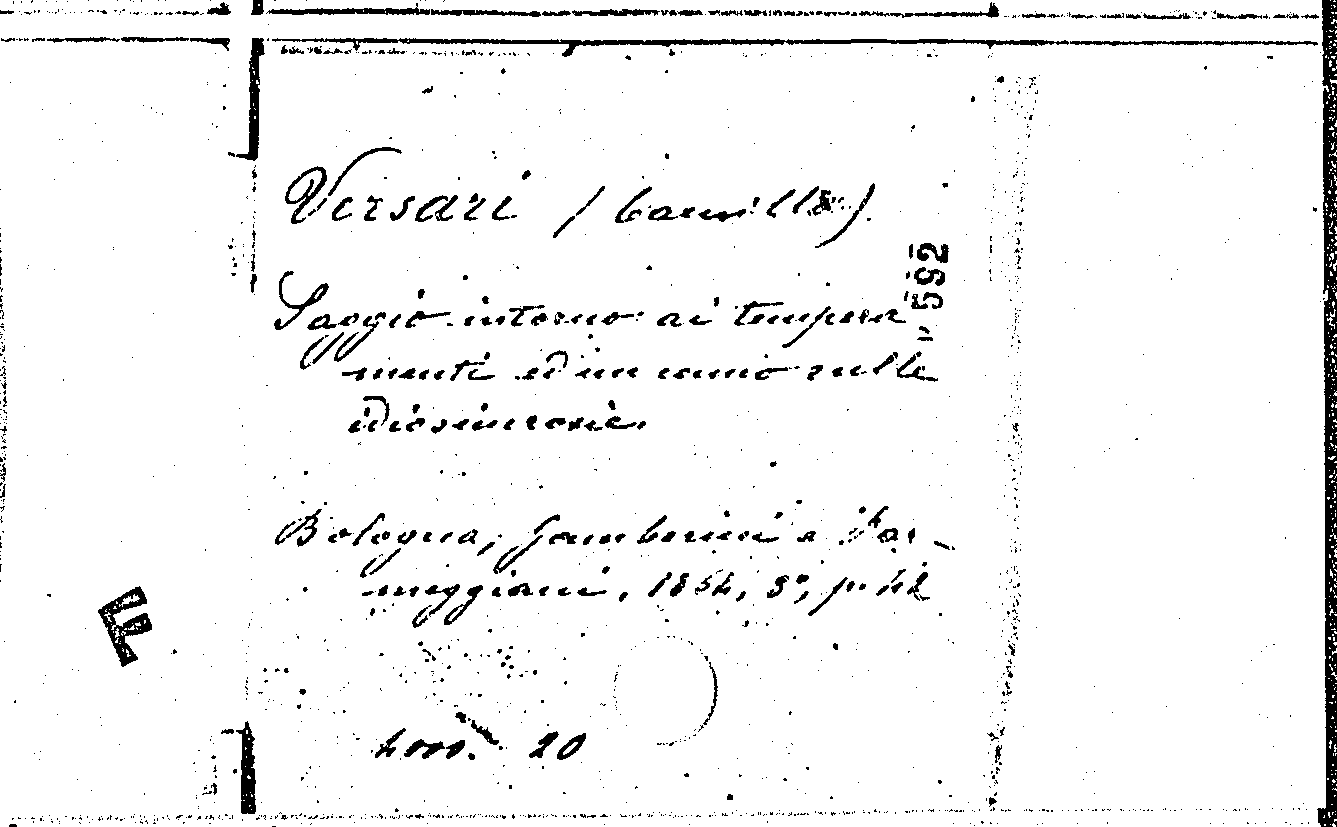 Versari (Camillo)
Saggio intorno ai tempera
menti ed un cenno sulle
idiosincrasie.
Bologna, Gamberini e Par-
meggiani, 1854, 8°, p.
4000. 20
592
F